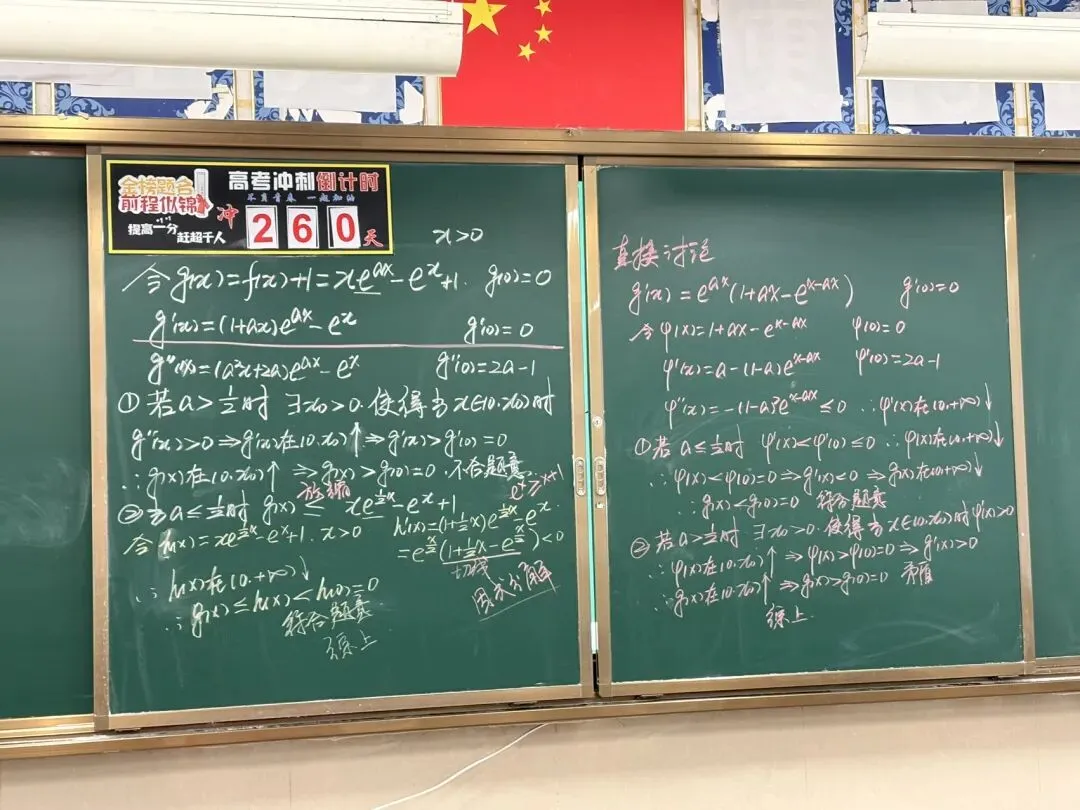 金榜题名
前程似锦
提高一分
赶超千人
高考冲刺倒计时
不负青春 一起加油
冲 260 天
x>0
令g(x)=f(x)+1=xe^{ax}-e^x+1. g(0)=0
g'(x)=(1+ax)e^{ax}-e^x g'(0)=0
g''(x)=(a²x+2a)e^{ax}-e^x g''(0)=2a-1
①若a>1/2时 ∃x₀>0.使得当x∈(0,x₀)时
g''(x)>0⇒g'(x)在(0,x₀)↑⇒g'(x)>g'(0)=0
∴g(x)在(0,x₀)↑ ⇒g(x)>g(0)=0.不合题意
放缩
e^x≥x+1
②当a≤1/2时 g(x)≤xe^{1/2x}-e^x+1
令h(x)=xe^{1/2x}-e^x+1. x>0
h'(x)=(1+1/2x)e^{1/2x}-e^x.
=e^{x/2}(1+1/2x-e^{x/2})<0
切线
因式分解
∴h(x)在(0,+∞)↓
∴g(x)≤h(x)<h(0)=0
符合题意
综上
直接讨论
g'(x)=e^{ax}(1+ax-e^{x-ax}) g'(0)=0
令φ(x)=1+ax-e^{x-ax} φ(0)=0
φ'(x)=a-(1-a)e^{x-ax} φ'(0)=2a-1
φ''(x)=-(1-a)²e^{x-ax}≤0 ∴φ'(x)在(0,+∞)↓
①若a≤1/2时 φ'(x)<φ'(0)≤0 ∴φ(x)在(0,+∞)↓
∴φ(x)<φ(0)=0⇒g'(x)<0⇒g(x)在(0,+∞)↓
∴g(x)<g(0)=0 符合题意
②若a>1/2时 ∃x₀>0.使得当x∈(0,x₀)时φ'(x)>0
∴φ(x)在(0,x₀)↑ ⇒φ(x)>φ(0)=0⇒g'(x)>0
∴g(x)在(0,x₀)↑ ⇒g(x)>g(0)=0 矛盾
综上